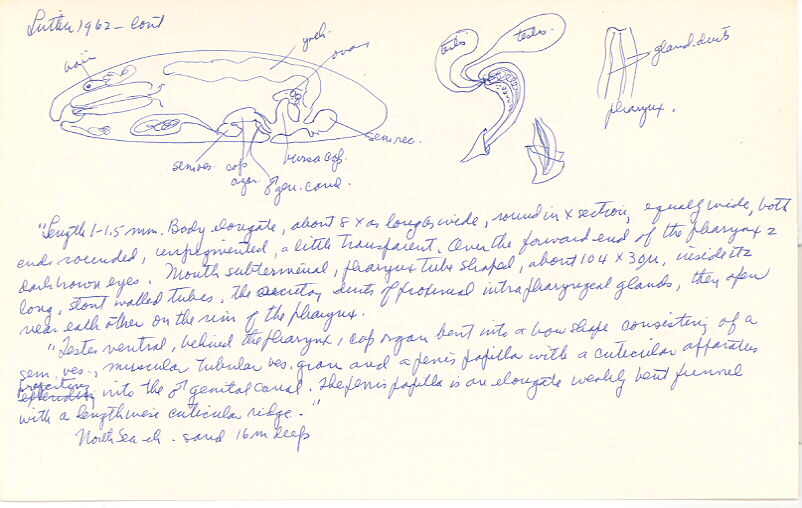 Luther 1962 - cont
brain
yolk.
ovary
testis
testes
gland. ducts
pharynx.
sem. ves.
cop organ
♂ gen. canal.
bursa cop.
sem rec.
"Length 1-1.5 mm. Body elongate, about 8 x as long as wide, round in x section, equally wide, both
ends rounded, unpigmented, a little transparent. Over the forward end of the pharynx 2
dark brown eyes. Mouth subterminal, pharynx tube shaped, about 104 x 30µ, inside it 2
long, stout walled tubes, the secretory ducts of proximal intrapharyngeal glands, they open
near each other on the rim of the pharynx.
"Testes ventral, behind the pharynx, cop organ bent into a bow shape consisting of a
sem. ves., muscular tubular ves. gran and a penis papilla with a cuticular apparatus
projecting into the ♂ genital canal. The penis papilla is an elongate weakly bent funnel
with a lengthwise cuticular ridge."
North Sea - sand 16 m deep